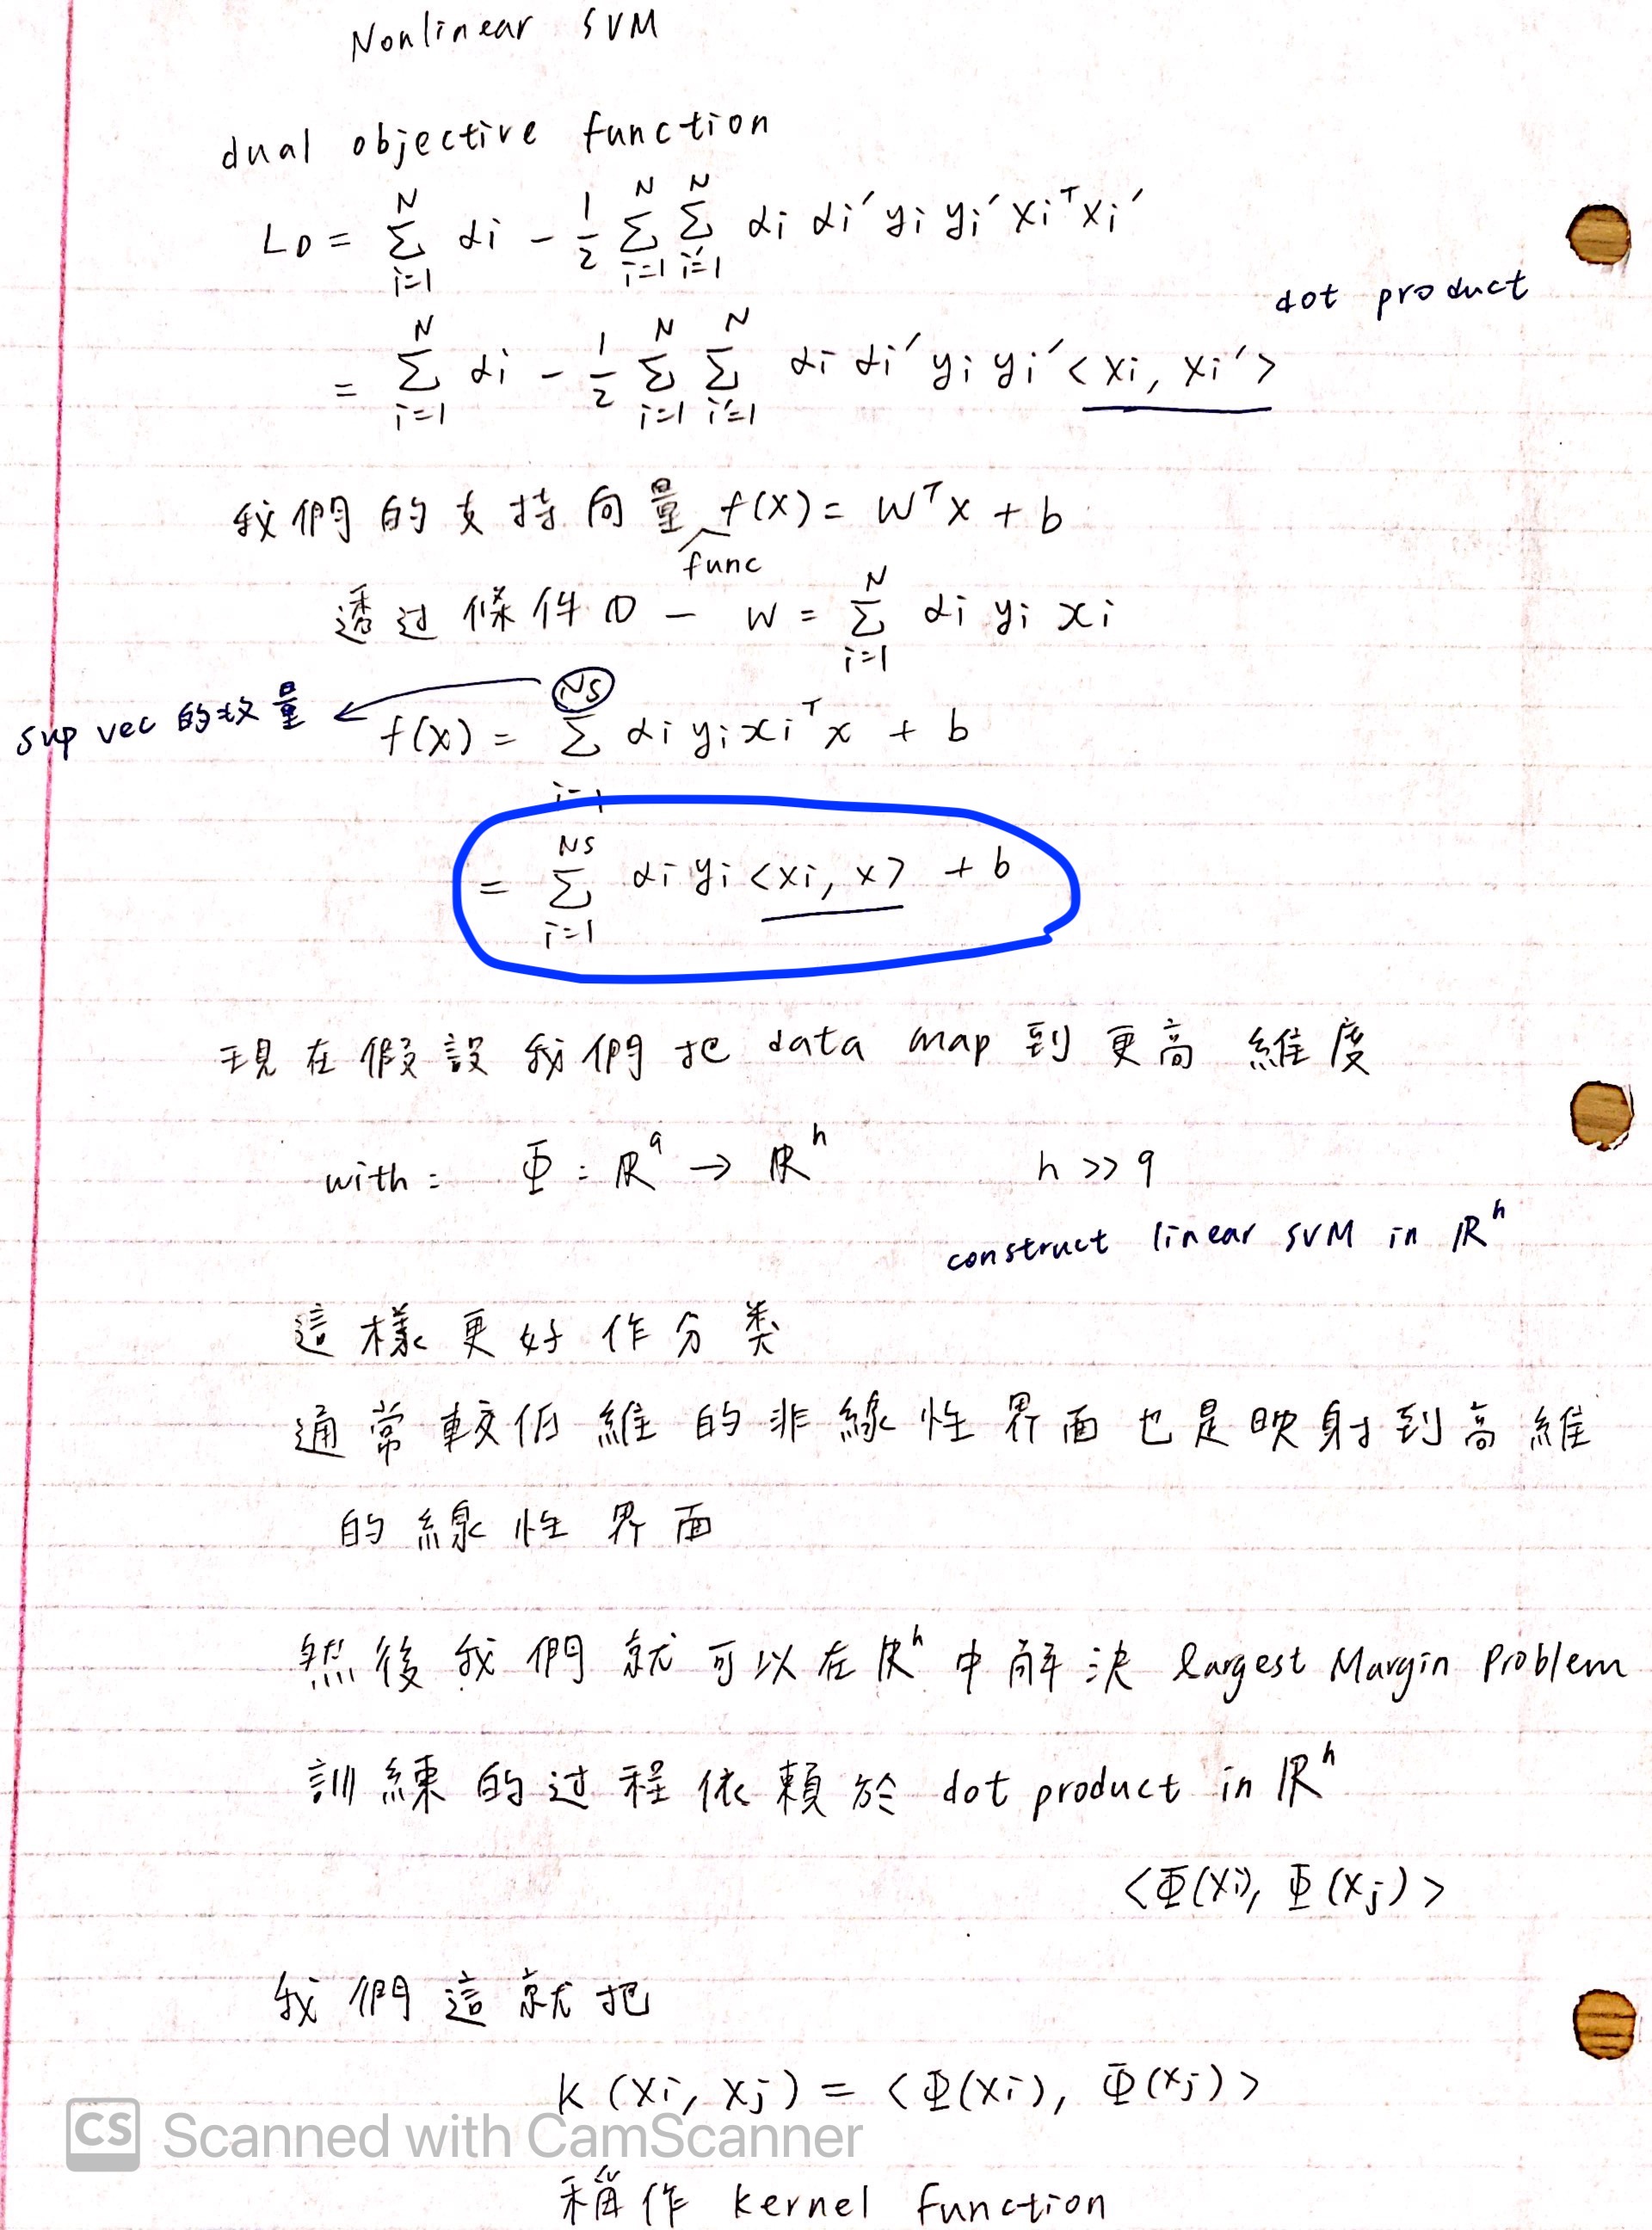 Nonlinear SVM
dual objective function
L_D = Σ_{i=1}^{N} αi - 1/2 Σ_{i=1}^{N} Σ_{i'=1}^{N} αi αi' yi yi' xi^T xi'
dot product
= Σ_{i=1}^{N} αi - 1/2 Σ_{i=1}^{N} Σ_{i'=1}^{N} αi αi' yi yi' <xi, xi'>
我們的支持向量 f(x) = W^T x + b
func
透过條件① - W = Σ_{i=1}^{N} αi yi xi
sup vec 的数量
f(x) = Σ_{i=1}^{NS} αi yi xi^T x + b
= Σ_{i=1}^{NS} αi yi <xi, x> + b
現在假設我們把 data map 到更高維度
with: Φ: ℝ^q → ℝ^h h >> q
construct linear SVM in ℝ^h
這樣更好作分类
通常較低維的非線性界面也是映射到高維
的線性界面
然後我們就可以在 ℝ^h 中解決 largest Margin Problem
訓練的过程依賴於 dot product in ℝ^h
<Φ(xi), Φ(xj)>
我們這就把
K(xi, xj) = <Φ(xi), Φ(xj)>
CS Scanned with CamScanner
稱作 kernel function